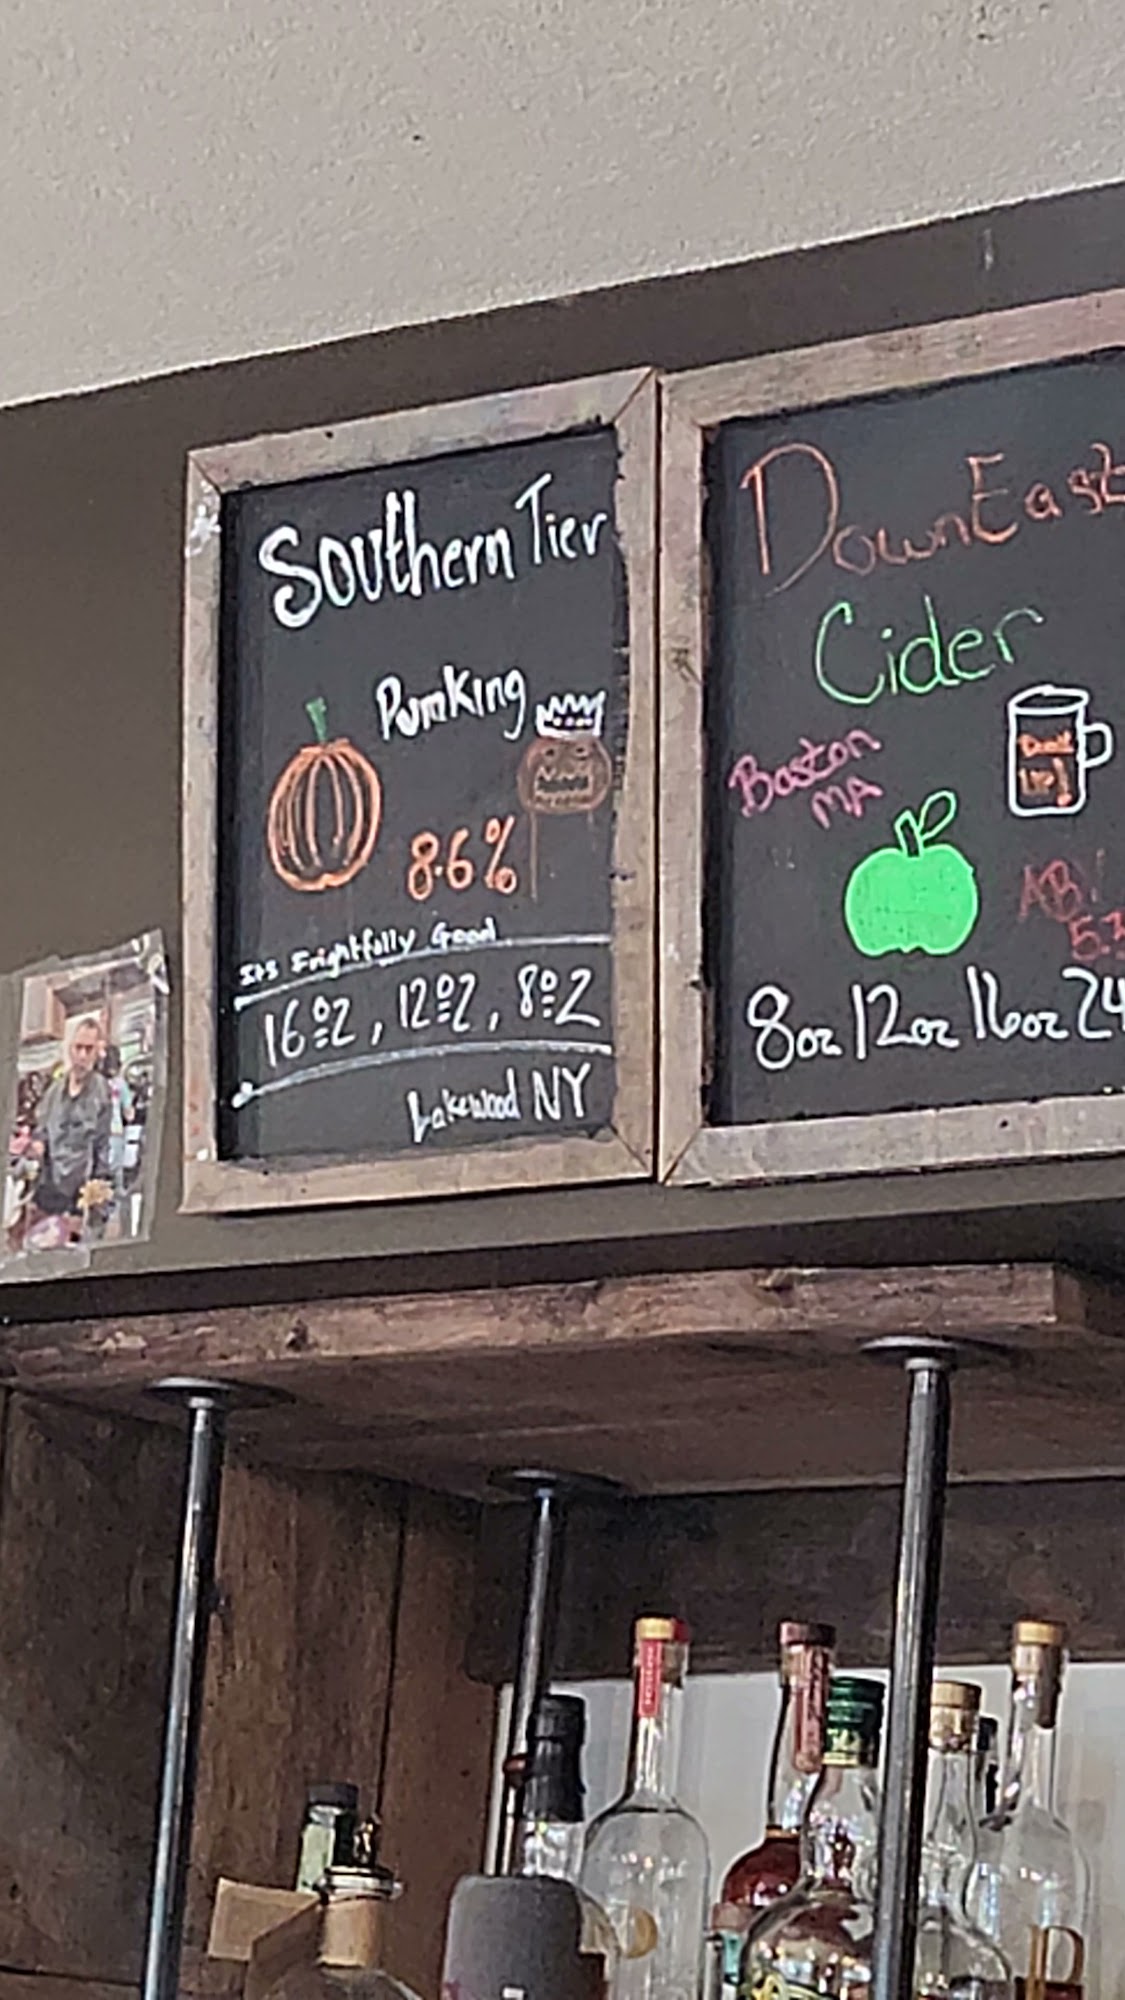 Southern Tier
PumKing
8.6%
Its Frightfully Good
16oz, 12oz, 8oz
Lakewood NY
DownEast
Cider
Boston
MA
ABV
5.
8oz 12oz 16oz 24